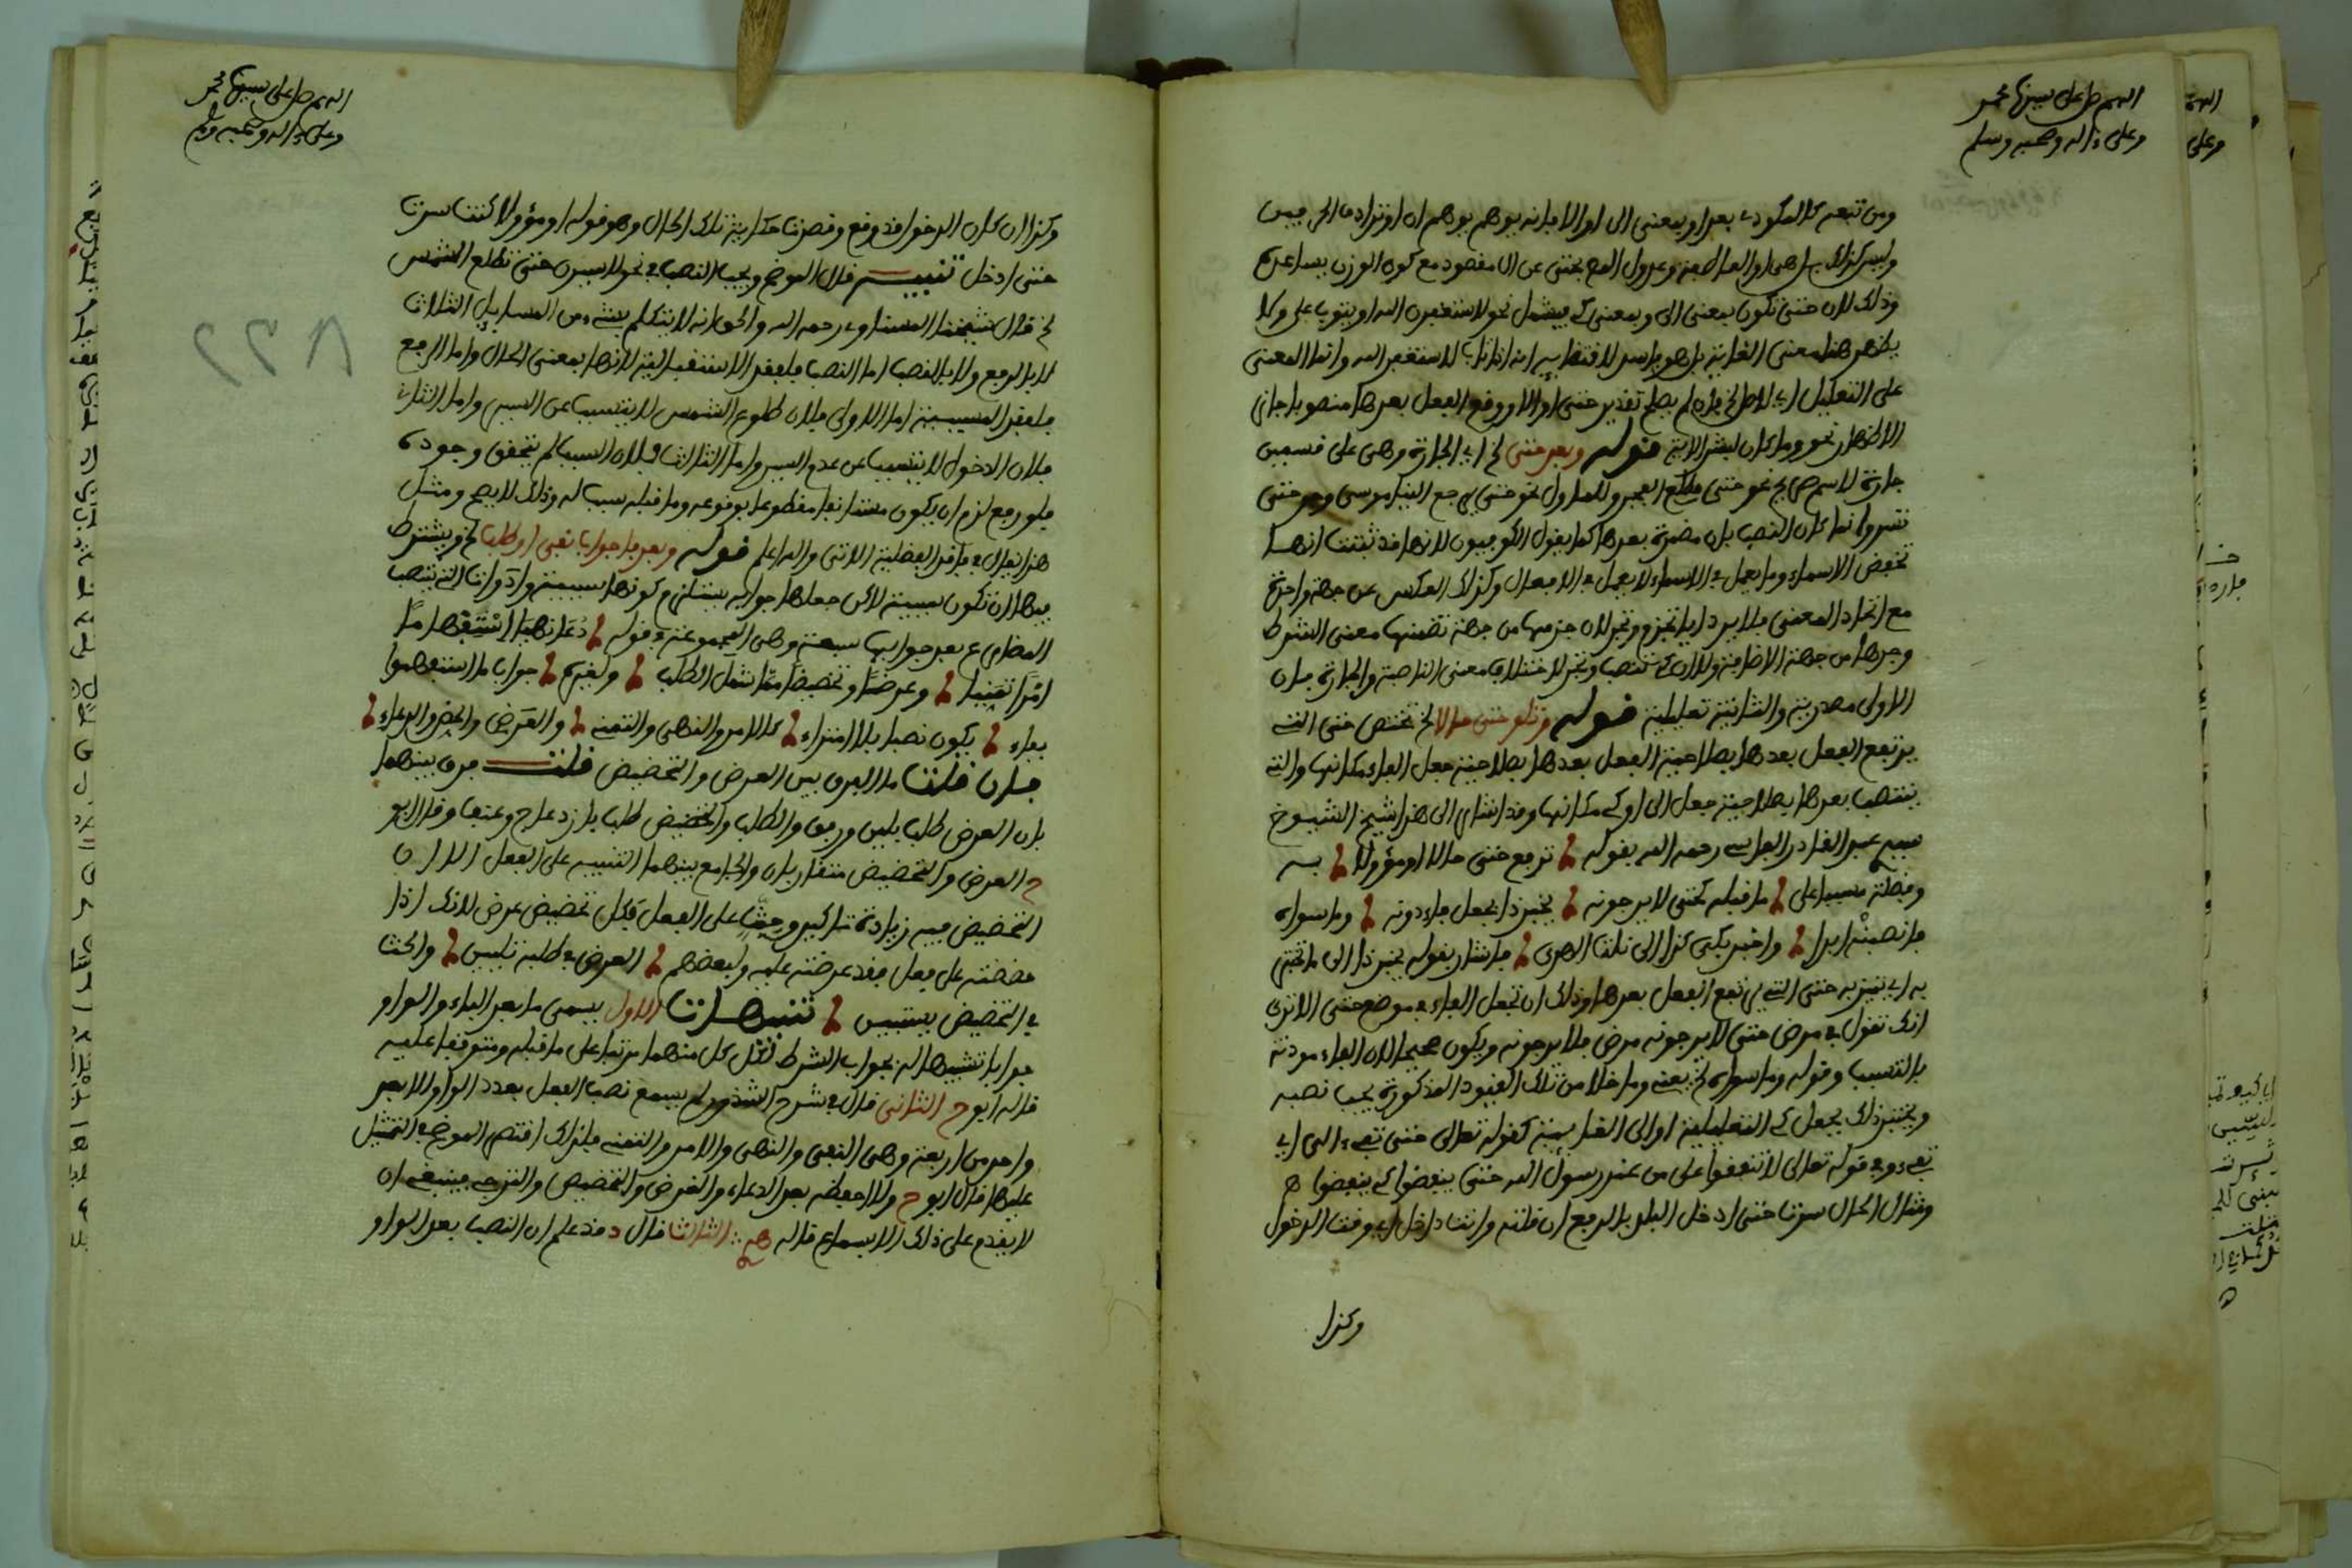 اللهم صل على سيدنا محمد
وعلى ءاله وصحبه وسلم
ومن تبعه كالمكودي بعد او بمعنى الى او الا فإنه يوهم ان او ترادف الحرفين
وليس كذلك بل هي او العاطفة وعدول المص بحتى عن الى مقصود مع كون الوزن يساعده
وذلك لان حتى تكون بمعنى الى وبمعنى كي فيشمل نحو لاستغفرن الله او يتوب علي ولا
يظهر هنا معنى الغاية بل هو فاسد لاقتضائه انه اذا تاب لا يستغفر الله وانما المعنى
على التعليل اي لان لم يصلح تقدير حتى او الا ووقع الفعل بعدها منصوبا جاز
الاظهار نحو وما كان لبشر الاية قوله وبعد حتى الخ اي الجارة وهي على قسمين
جارة للاسم الصريح نحو حتى مطلع الفجر وللماول نحو حتى يرجع الينا موسى وسر حتى
تسر وانما كان النصب بان مضمرة بعدها كما يقول الكوفيون لانها قد ثبتت انها
تخفض الاسماء وما يعمل في الاسماء لا يعمل في الافعال وكذلك العكس من جهة واحدة
مع اتحاد المعنى فلا يرد ايا تجزم وتجر لان جزمها من جهة تضمنها معنى الشرط
وجرها من جهة الاضافة ولا ان كي تنصب وتجر لاختلاف معنى الناصبة والجارة فان
الاولى مصدرية والثانية تعليلية قوله وتلو حتى حالا الخ تختص حتى التي
يرتفع الفعل بعدها بصلاحية الفعل بعدها بصلاحية جعل الفاء مكانها والتي
ينتصب بعدها بصلاحية جعل الى او كي مكانها وقد اشار الى هذا شيخ الشيوخ
سيدي عبد القادر الفاسي رحمه الله بقوله ترفع حتى حالا او مؤولا به
وفضلة مسببا على ما قبله كحتى لا يرجونه يختبر ذا بجعل فاء دونه وما سواه
فانصبنه ابدا واختبر بكي كذا الى تلف الهدى فاشار بقوله يختبر ذا الى ما تختبر
به اي تميز به حتى التي يرتفع الفعل بعدها وذلك ان تجعل الفاء في موضع حتى الا ترى
انك تقول في مرض حتى لا يرجونه مرض فلا يرجونه ويكون صحيحا لان الفاء مؤذنة
بالتسبب وقوله وما سواه الخ يعني وما خلا من تلك القيود المذكورة يجب نصبه
ويختبر ذلك بجعل كي التعليلية او الى الغائية كقوله تعالى حتى تفيء الى اي
تفيء وقوله تعالى لا تنفقوا على من عند رسول الله حتى ينفضوا كي ينفضوا
ومثال الحال سرت حتى ادخل البلد بالرفع ان قلته وانت داخل اي وقت الدخول
وكذا
اللهم صل على سيدنا محمد
وعلى ءاله وصحبه وسلم
وكذا ان كان الدخول قد وقع وقصدت حكاية تلك الحال وهو قوله او مؤولا كنت سرت
حتى ادخل تنبيه قال الموضح ويجب النصب في نحو لاسيرن حتى تطلع الشمس
الخ قال شيخنا المسناوي رحمه الله والحق انه لا يتكلم بشيء من المسايل الثلاث
لا بالرفع ولا بالنصب اما النصب فلفقد الاستقبالية لانها بمعنى الحال واما الرفع
فلفقد المسببية اما الاولى فلان طلوع الشمس لا يتسبب عن السير واما الثانية
فلان الدخول لا يتسبب عن عدم السير واما الثالث فلان السبب لم يتحقق وجوده
فلو رفع لزم ان يكون مستانفا مقطوعا بوقوعه وما قبله سبب له وذلك لا يصح ومثل
هذا يقال في فاقد الفضلية الاتي والله اعلم قوله وبعد فا جواب نفي او طلب الخ ويشترط
فيها ان تكون سببية لاكن جعلها جوابية يستلزم كونها سببية وادوات التي ينتصب
المضارع بعد جوابها سبعة وهي المجموعة في قوله دعا نهيا استفهاما
امرا تمنيا وعرضا وتحضيضا مما شمل الطلب ولغيره جواب ما استفهموا
بفاء يكون نصبا بلا امتراء كالامر والنهي والتمني والعرض والحض والدعاء
فان قلت ما الفرق بين العرض والتحضيض قلت فرق بينهما
بان العرض طلب بلين ورفق والطلب والتحضيض طلب بازدعاج وعنف وقال ابو
ح العرض والتحضيض متقاربان والجامع بينهما التنبيه على الفعل الا ان
التحضيض فيه زيادة تاكيد وحث على الفعل فكل تحضيض عرض لانك اذا
حضضته على فعل فقد عرضته عليه ولبعضهم العرض في طلبه تليين والحث
في التحضيض يستبين تنبيهات الاول يسمى ما بعد الفاء والواو
جوابا تشبيها له بجواب الشرط لكون كل منهما مرتبا على ما قبله ومتوقفا عليه
قاله ابو ح الثاني قال في شرح الشذور لم يسمع نصب الفعل بعد الواو الا بعد
واحد من اربعة وهي النفي والنهي والامر والتمني فلذلك اقتصر الموضح في التمثيل
عليها قال ابو ح ولا احفظه بعد الدعاء والعرض والتحضيض والترجي فينبغي ان
لا يقدم على ذلك الا بسماع قاله الثالث قال د قد علم ان النصب بعد الواو